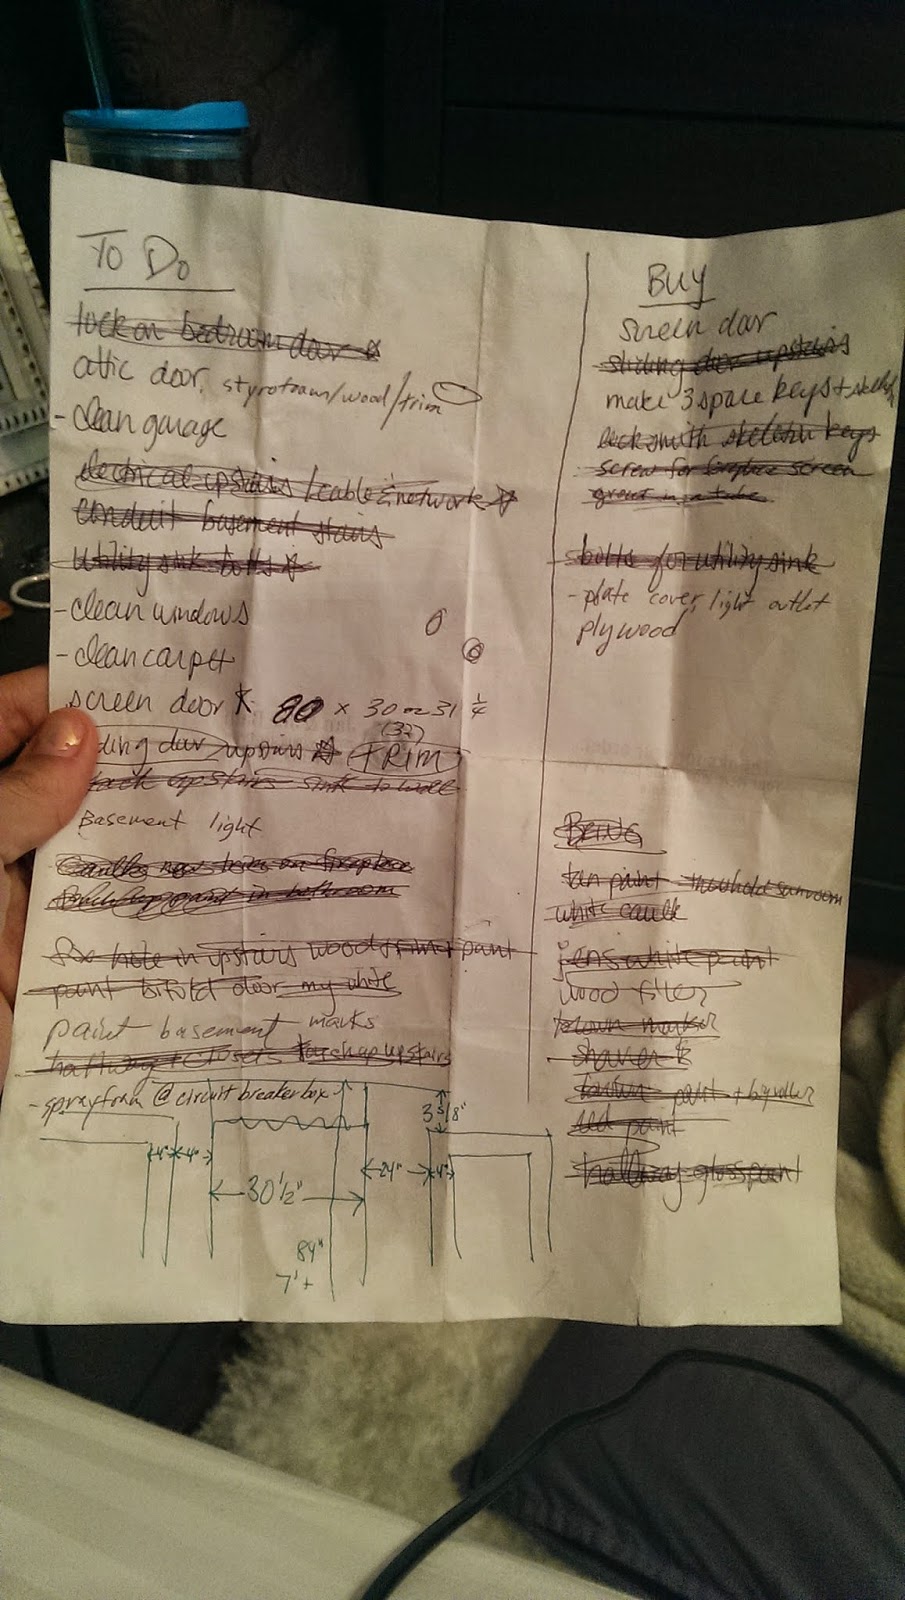 To Do
lock on bedroom door
attic door, styrofoam/wood/trim
- clean garage
electrical upstairs / cable & network
conduit basement stairs
utility sink bolts
- clean windows
- clean carpet
screen door 80 x 30 or 31 1/4
(32)
ding door upstairs TRIM
back upstairs sink to wall
Basement light
Caulk new on fireplace
paint in bathroom
fix hole in upstairs wood trim + paint
paint bifold door my white
paint basement marks
hallway + closets touch up upstairs
- sprayfoam @ circuit breaker box
4" 4"
30 1/2"
24" 4"
3 5/8"
84"
7'+
BUY
screen door
sliding door upstairs
make 3 spare keys +
locksmith skeleton keys
screw for fireplace screen
grout in a tube
bolts for utility sink
- plate cover, light outlet
plywood
BRING
tan paint threshold sunroom
white caulk
jens white paint
wood filler
brown marker
brown paint + big roller
red paint
hallway gloss paint